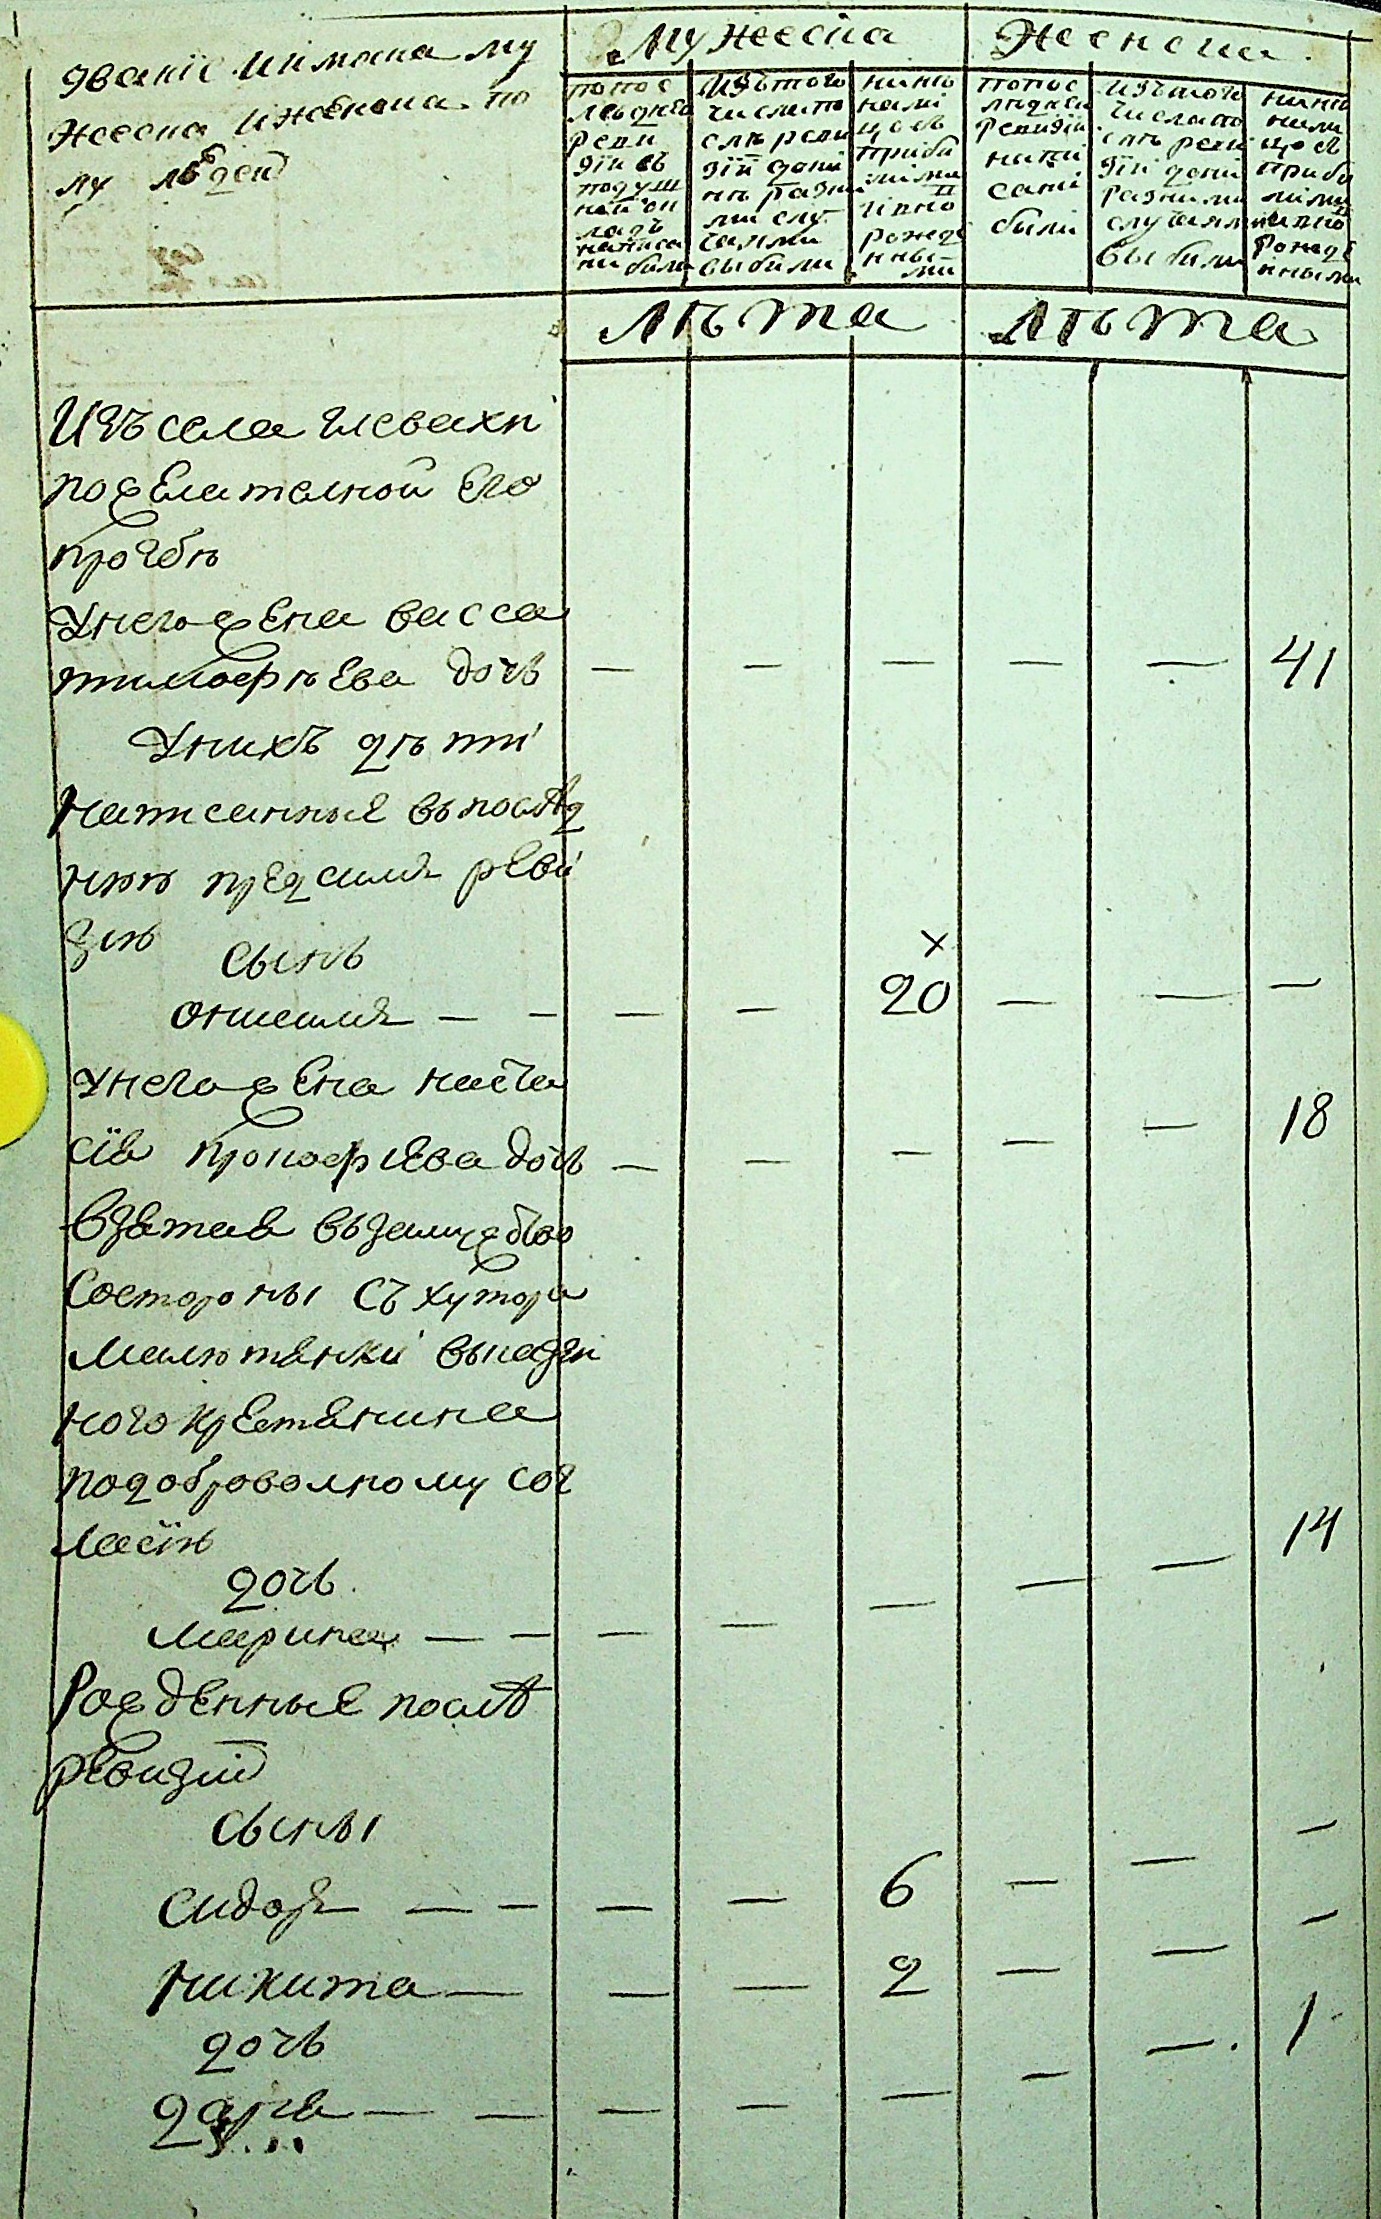 Званіе и имана му
Жеска и женска по
лу людей
Мужеска
Женска
по пос
леднеі
реви
зіи въ
подуш
ной ок
ладъ
написа
ни были
Изъ того
числа по
слѣ реви
зіи до ні
нѣ разни
ми слу
чаями
выбили
нині
налі
цо съ
приби
лими
и вно
рожде
нны
ми
по пос
лѣдней
ревизіи
напи
сані
были
Изъ того
числа по
слѣ реви
зіи до ні
разними
случаями
выбили
нині
нали
цо съ
прибы
лими
и вно
рожде
нными
Лѣта
Лѣта
Изъ села Глевахи
по желателной Его
прозбѣ
У него жена васса
тимофѣева дочь — — — — — 41
У нихъ дѣти
написанные въ послѣд
нюю пред симъ реви
зію
сынъ
онисимъ — — — — 20 — — —
х
У него жена наста
сія прокофиева дочь — — — — — 18
взятая въ замужство
состороны съ хутора
Малютянки выказен
ного крестянина
по доброволному сог
ласію
дочь
марина — — — — — — — 14
Рожденные послѣ
ревизіи
сыны
сидоръ — — — — 6 — — —
никита — — — 2 — — —
дочь
дарія — — — — — — — 1